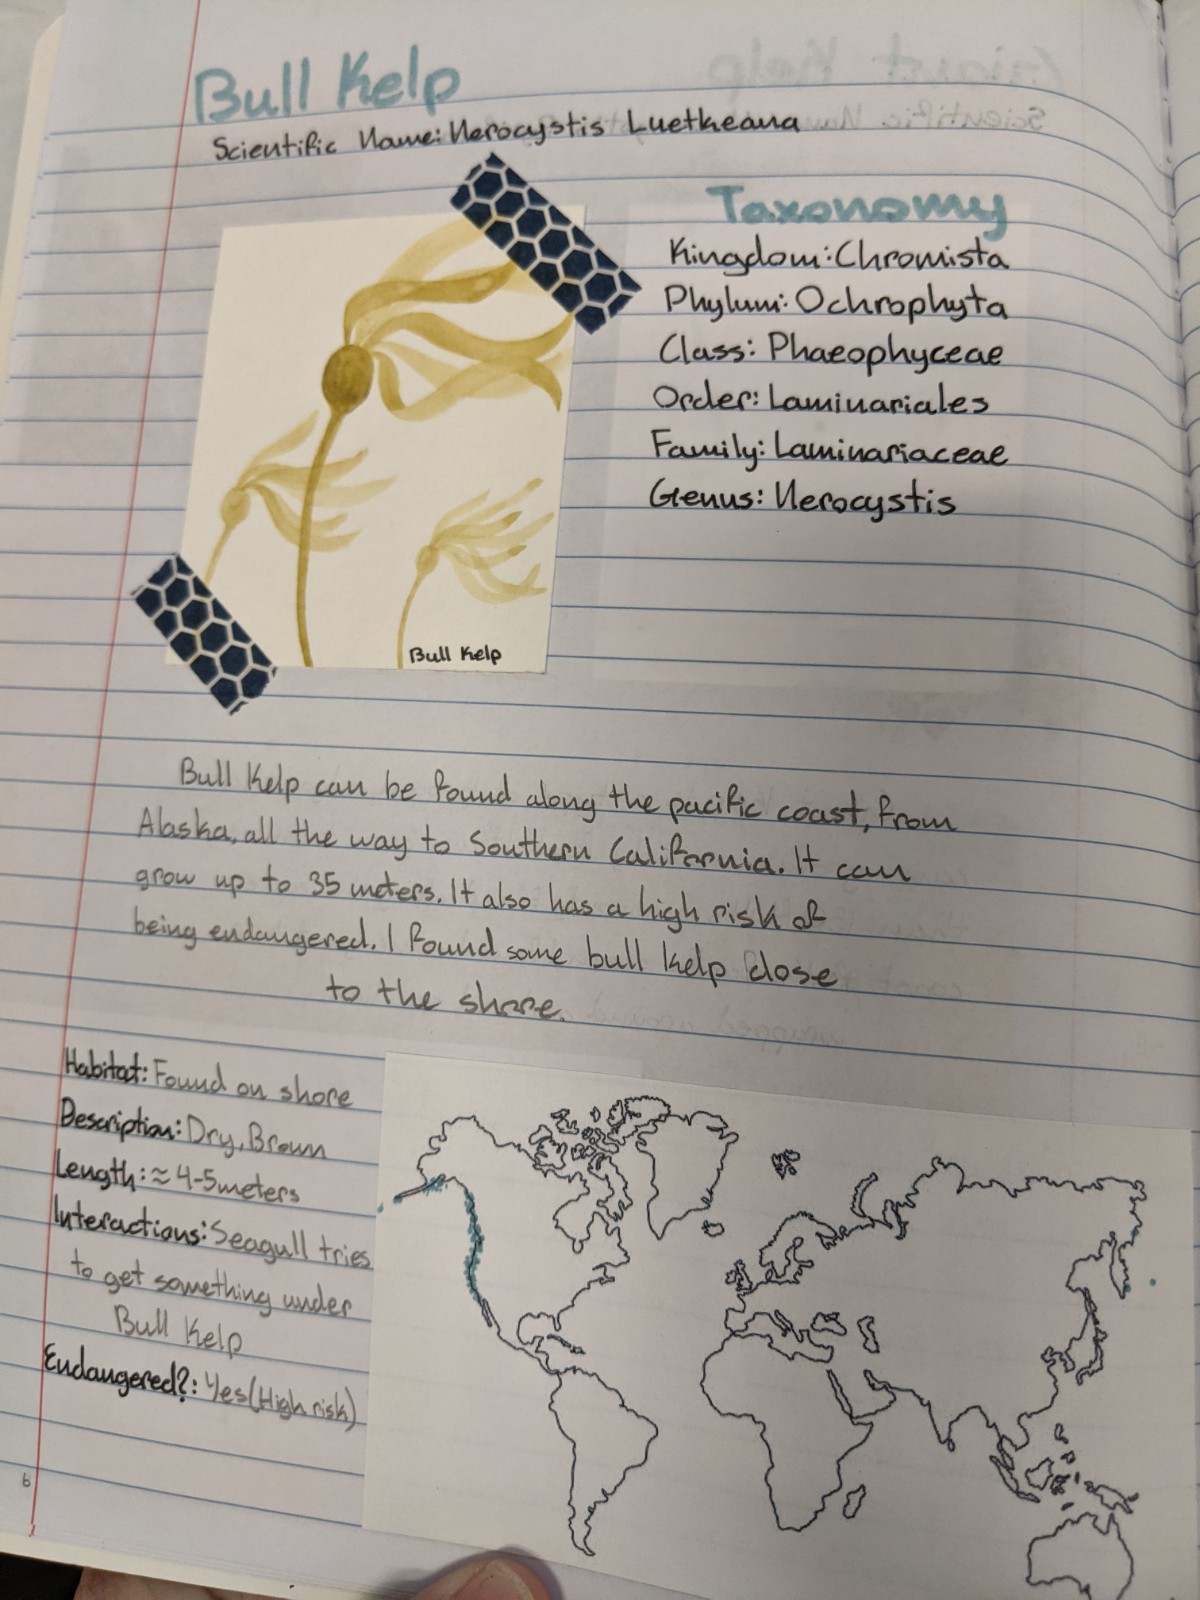 Bull Kelp
Scientific Name: Nerocystis Luetkeana
Taxonomy
Kingdom: Chromista
Phylum: Ochrophyta
Class: Phaeophyceae
Order: Laminariales
Family: Laminariaceae
Genus: Nerocystis
Bull Kelp
Bull Kelp can be found along the pacific coast, from
Alaska, all the way to Southern California. It can
grow up to 35 meters. It also has a high risk of
being endangered. I found some bull kelp close
to the shore.
Habitat: Found on shore
Description: Dry, Brown
Length: ≈ 4-5 meters
Interactions: Seagull tries
to get something under
Bull Kelp
Endangered?: Yes (High risk)
6